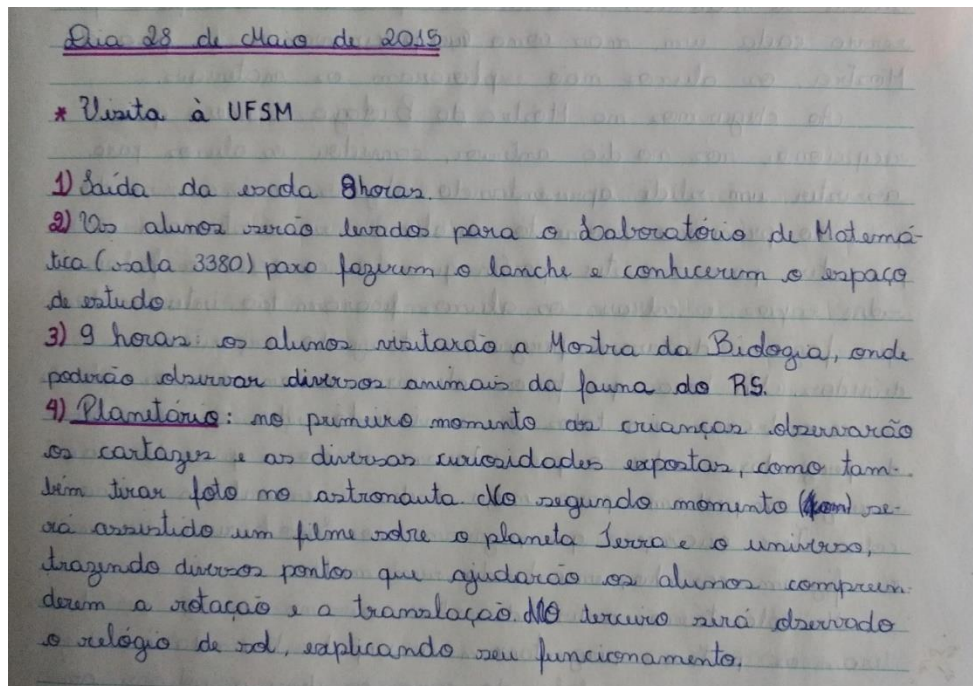 Dia 28 de Maio de 2015
* Visita à UFSM
1) Saída da escola 8horas.
2) Os alunos serão levados para o Laboratório de Matemá-
tica (sala 3380) para fazerem o lanche e conhecerem o espaço
de estudo
3) 9 horas: os alunos visitarão a Mostra da Biologia, onde
poderão observar diversos animais da fauna do RS.
4) Planetário: no primeiro momento as crianças observarão
os cartazes e as diversas curiosidades expostas, como tam-
bém tirar foto no astronauta. No segundo momento se-
rá assistido um filme sobre o planeta Terra e o universo,
trazendo diversos pontos que ajudarão os alunos compreen-
derem a rotação e a translação. No terceiro será observado
o relógio de sol, explicando seu funcionamento.